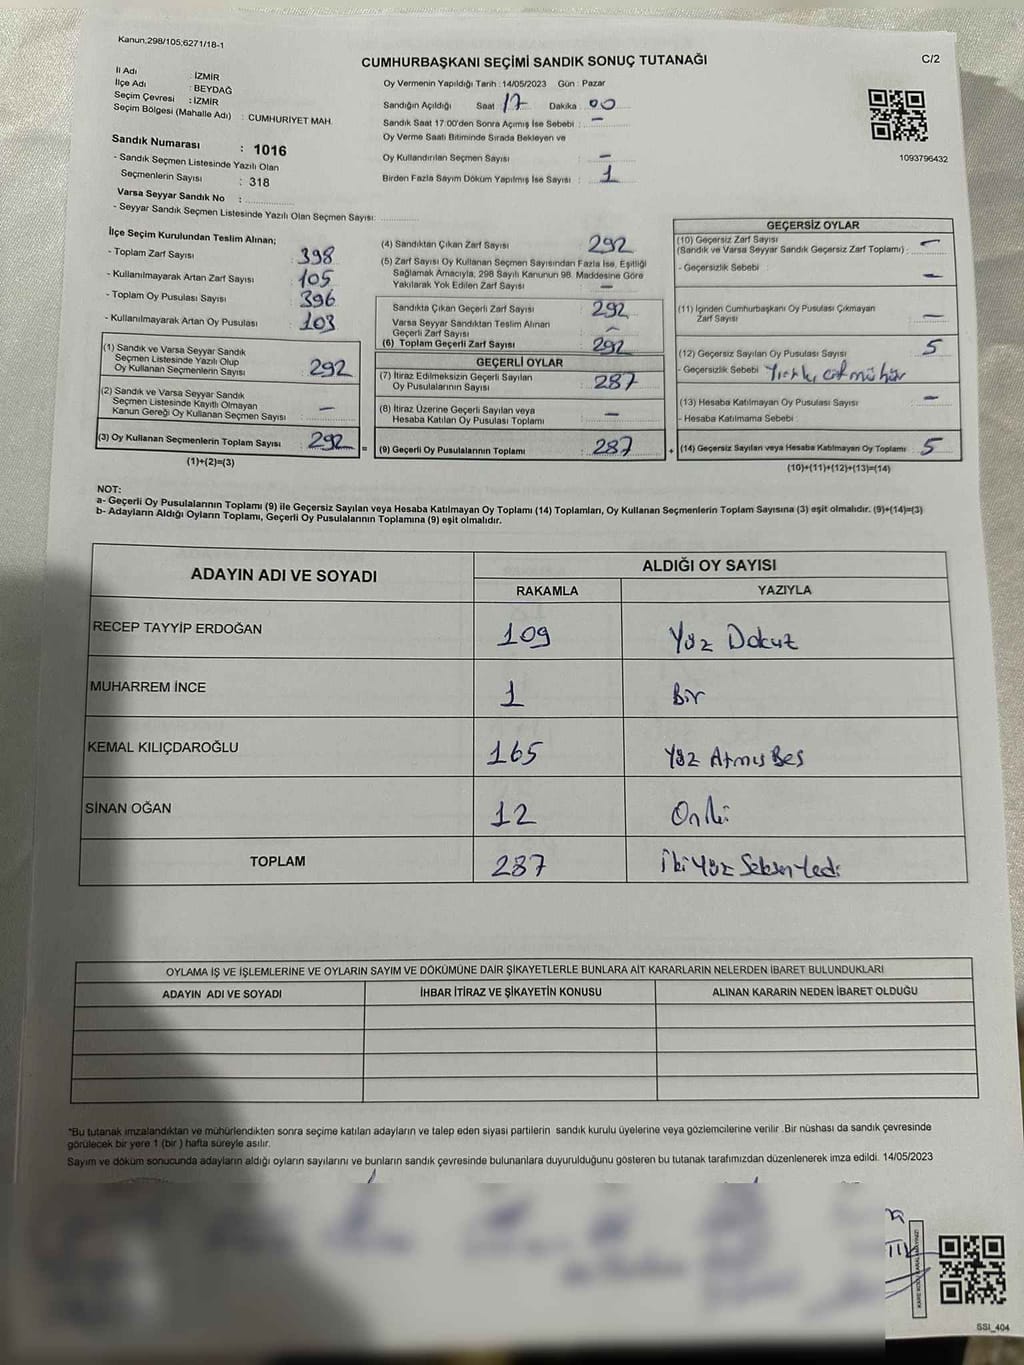 Kanun;298/105;6271/18-1
CUMHURBAŞKANI SEÇİMİ SANDIK SONUÇ TUTANAĞI
C/2
İl Adı : İZMİR
İlçe Adı : BEYDAĞ
Seçim Çevresi : İZMİR
Seçim Bölgesi (Mahalle Adı) : CUMHURİYET MAH.
Sandık Numarası : 1016
- Sandık Seçmen Listesinde Yazılı Olan
Seçmenlerin Sayısı : 318
Varsa Seyyar Sandık No :
- Seyyar Sandık Seçmen Listesinde Yazılı Olan Seçmen Sayısı:
Oy Vermenin Yapıldığı Tarih : 14/05/2023 Gün : Pazar
Sandığın Açıldığı Saat 17 Dakika 00
Sandık Saat 17:00'den Sonra Açımış İse Sebebi : -
Oy Verme Saati Bitiminde Sırada Bekleyen ve
Oy Kullandırılan Seçmen Sayısı -
Birden Fazla Sayım Döküm Yapılmış İse Sayısı : 1
1093796432
İlçe Seçim Kurulundan Teslim Alınan;
- Toplam Zarf Sayısı : 398
- Kullanılmayarak Artan Zarf Sayısı : 105
- Toplam Oy Pusulası Sayısı : 396
- Kullanılmayarak Artan Oy Pusulası : 103
(1) Sandık ve Varsa Seyyar Sandık
Seçmen Listesinde Yazılı Olup
Oy Kullanan Seçmenlerin Sayısı : 292
(2) Sandık ve Varsa Seyyar Sandık
Seçmen Listesinde Kayıtlı Olmayan
Kanun Gereği Oy Kullanan Seçmen Sayısı : -
(3) Oy Kullanan Seçmenlerin Toplam Sayısı : 292 =
(1)+(2)=(3)
(4) Sandıktan Çıkan Zarf Sayısı : 292
(5) Zarf Sayısı Oy Kullanan Seçmen Sayısından Fazla İse, Eşitliği
Sağlamak Amacıyla, 298 Sayılı Kanunun 98. Maddesine Göre
Yakılarak Yok Edilen Zarf Sayısı : -
Sandıkta Çıkan Geçerli Zarf Sayısı : 292
Varsa Seyyar Sandıktan Teslim Alınan
Geçerli Zarf Sayısı : -
(6) Toplam Geçerli Zarf Sayısı : 292
GEÇERLİ OYLAR
(7) İtiraz Edilmeksizin Geçerli Sayılan
Oy Pusulalarının Sayısı : 287
(8) İtiraz Üzerine Geçerli Sayılan veya
Hesaba Katılan Oy Pusulası Toplamı : -
(9) Geçerli Oy Pusulalarının Toplamı : 287 +
GEÇERSİZ OYLAR
(10) Geçersiz Zarf Sayısı
(Sandık ve Varsa Seyyar Sandık Geçersiz Zarf Toplamı) : -
- Geçersizlik Sebebi : -
(11) İçinden Cumhurbaşkanı Oy Pusulası Çıkmayan
Zarf Sayısı : -
(12) Geçersiz Sayılan Oy Pusulası Sayısı : 5
- Geçersizlik Sebebi :
(13) Hesaba Katılmayan Oy Pusulası Sayısı : -
- Hesaba Katılmama Sebebi :
(14) Geçersiz Sayılan veya Hesaba Katılmayan Oy Toplamı : 5
(10)+(11)+(12)+(13)=(14)
NOT:
a- Geçerli Oy Pusulalarının Toplamı (9) ile Geçersiz Sayılan veya Hesaba Katılmayan Oy Toplamı (14) Toplamları, Oy Kullanan Seçmenlerin Toplam Sayısına (3) eşit olmalıdır. (9)+(14)=(3)
b- Adayların Aldığı Oyların Toplamı, Geçerli Oy Pusulalarının Toplamına (9) eşit olmalıdır.
ADAYIN ADI VE SOYADI ALDIĞI OY SAYISI
RAKAMLA YAZIYLA
RECEP TAYYİP ERDOĞAN 109 Yüz Dokuz
MUHARREM İNCE 1 Bir
KEMAL KILIÇDAROĞLU 165 Yüz Atmış Beş
SİNAN OĞAN 12 On iki
TOPLAM 287 İki Yüz Seksen Yedi
OYLAMA İŞ VE İŞLEMLERİNE VE OYLARIN SAYIM VE DÖKÜMÜNE DAİR ŞİKAYETLERLE BUNLARA AİT KARARLARIN NELERDEN İBARET BULUNDUKLARI
ADAYIN ADI VE SOYADI İHBAR İTİRAZ VE ŞİKAYETİN KONUSU ALINAN KARARIN NEDEN İBARET OLDUĞU
*Bu tutanak imzalandıktan ve mühürlendikten sonra seçime katılan adayların ve talep eden siyasi partilerin sandık kurulu üyelerine veya gözlemcilerine verilir .Bir nüshası da sandık çevresinde
görülecek bir yere 1 (bir ) hafta süreyle asılır.
Sayım ve döküm sonucunda adayların aldığı oyların sayılarını ve bunların sandık çevresinde bulunanlara duyurulduğunu gösteren bu tutanak tarafımızdan düzenlenerek imza edildi. 14/05/2023
SSI_404